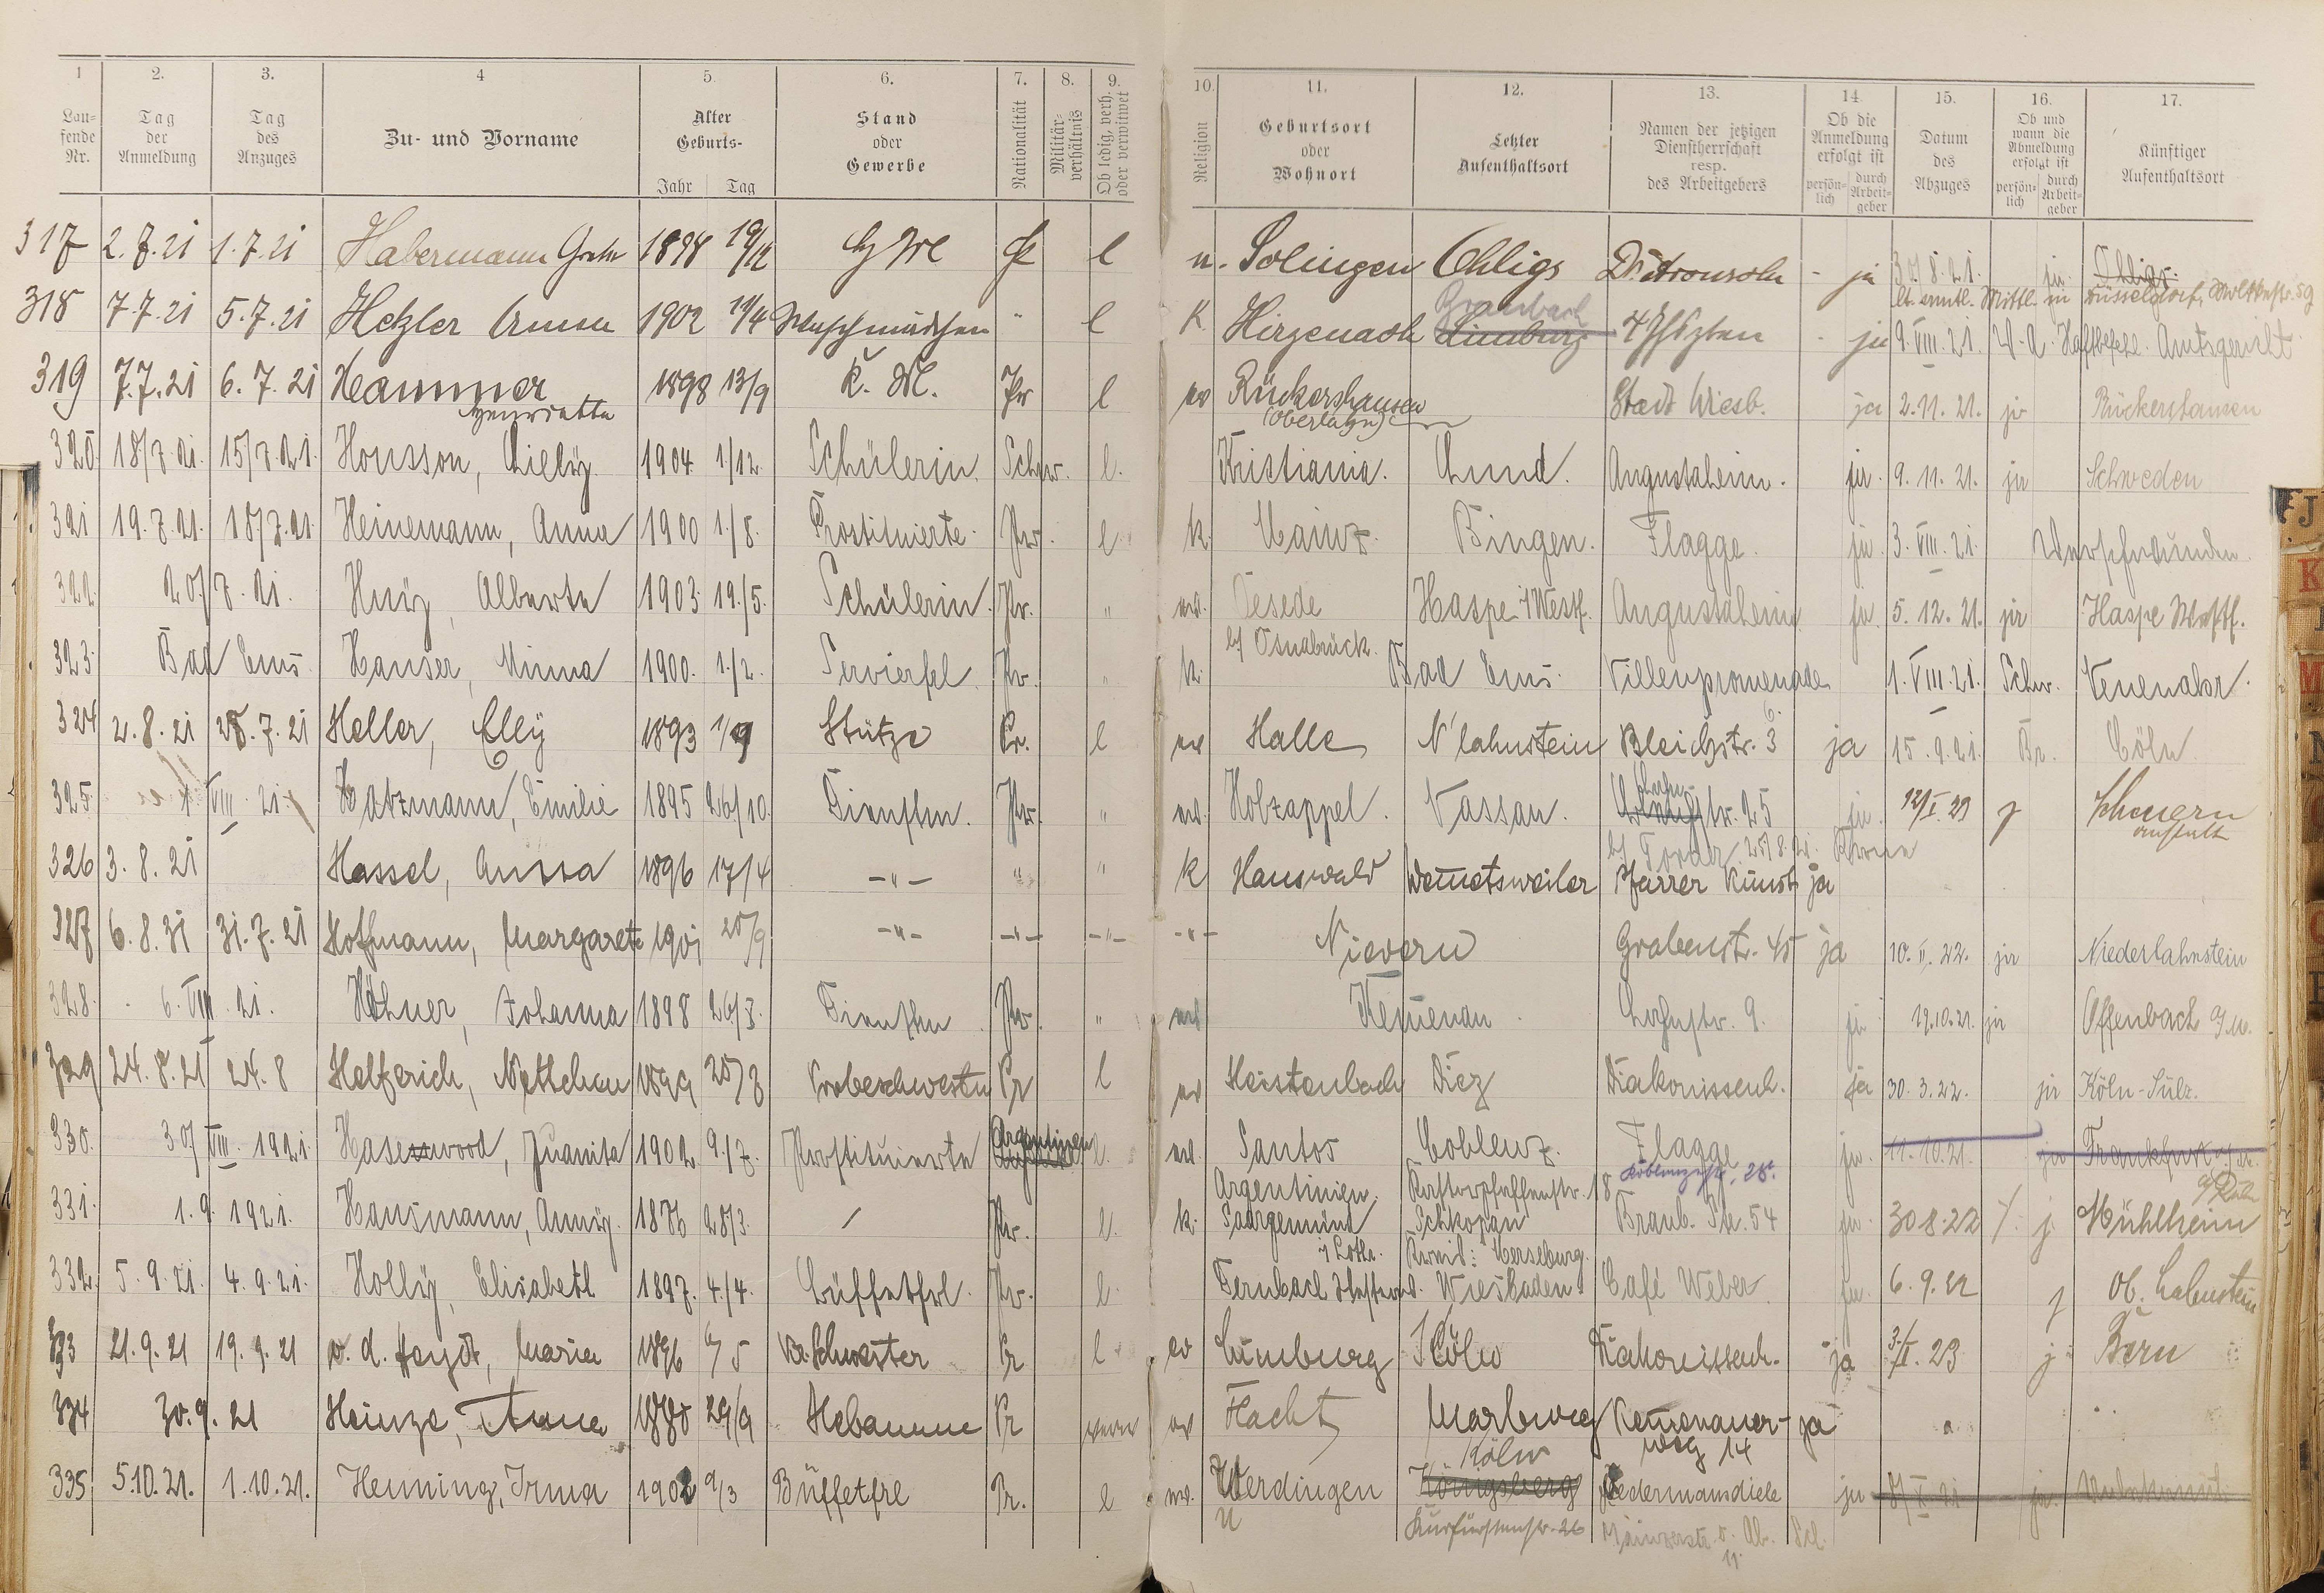 1 2. 3. 4 5. 6. 7. 8. 9. 10. 11. 12. 13. 14. 15. 16. 17.
Lau-
fende
Nr.
Tag
der
Anmeldung
Tag
des
Anzuges
Zu- und Vorname
Alter
Geburts-
Jahr Tag
Stand
oder
Gewerbe
Nationalität
Militär-
verhältnis
Ob ledig, verh.
oder verwitwet
Religion
Geburtsort
oder
Wohnort
Letzter
Aufenthaltsort
Namen der jetzigen
Dienstherrschaft
resp.
des Arbeitgebers
Ob die
Anmeldung
erfolgt ist
persön-
lich
durch
Arbeit-
geber
Datum
des
Abzuges
Ob und
wann die
Abmeldung
erfolgt ist
persön-
lich
durch
Arbeit-
geber
Künftiger
Aufenthaltsort
317 2.7.21 1.7.21 Habermann 1898 19/12 l Solingen Ohligs - ja Ohligs
Düsseldorf
318 7.7.21 5.7.21 Hetzler Anna 1902 19/4 " l K Hirzenach Limburg - ja 9.VIII.21. Haftbefehl Amtsgericht
Braubach
319 7.7.21 6.7.21 Hammer 1898 13/9 K. M. Pr l ev Rückershausen Stadt Wiesb. ja 2.11.21. ja Rückershausen
Henriette
(Oberlahn)
320. 18/7.21. 15/7.21. Housson, 1904 1/12. Schülerin. Schw. l. Kristiania. Lund. Augustaheim. ja. 9.11.21. ja Schweden
321 19.7.21. 18/7.21. Heinemann, Anna 1900 1./8. Prostituierte. Pr. l. k. Mainz. Bingen. Flagge. ja. 3.VIII.21. Verschwunden.
322. 20/7.21. Alberta 1903. 19./5. Schülerin. Pr. " ev. Oesede Haspe i/Westf. Augustaheim ja. 5.12.21. ja Haspe Westf.
b/ Osnabrück.
323. Bad Ems. Hauser, Minna 1900. 1./2. Servierfrl. Pr. " k. Bad Ems. Villenpromenade 1.VIII.21. Schr. Neuenahr.
324 2.8.21 28.7.21 Heller, Elly 1893 1/9 Stütze Pr. l ev Halle N'lahnstein Bleichstr. 3 ja 15.9.21. Br. Cöln
325 VIII.21. Hatzmann, Emilie 1895 26/10. Dienstm. Pr. " ev. Holzappel. Nassau. 25 ja. 12/I.23 j Scheuern
Lahn-
anstalt
326 3.8.21 Hassel, Anna 1896 17/4 -"- " " k Hauswald Wemetsweiler Pfarrer Kunst ja
25/8.21. Krone
327 6.8.21 31.7.21 Hofmann, Margarete 1901 25/9 -"- -"- -"- -"- Nievern Grabenstr. 45 ja 10.II.22. ja Niederlahnstein
328. 6.VIII.21. Höhner, Johanna 1898 26/3. Dienstm. Pr. " ev. Kemenau. Lahnstr. 9. ja 19.10.21. ja Offenbach a/M.
329 24.8.21 24.8 Helferich, Nettchen 1899 25/3 Probeschwester Pr l ev Heistenbach Diez Diakonissenh. ja 30.3.22. ja Köln-Sülz.
330. 30/VIII.1921. Hasenwood, Juanita 1902. 9./7. Prostituierte Argentinien l. ev. Santos Coblenz. Flagge ja. 11.10.21. ja Frankfurt a/M.
Argentinien.
Koblenzerstr. 28.
331. 1.9.1921. Hausmann, Anny. 1876 28/3. / Pr. l. k. Saargemünd Schkopau Braub. Str. 54 ja. 30.8.22 j. Mühlheim
i/ Lothr. Merseburg. a/Ruhr
332. 5.9.21. 4.9.21. Holly, Elisabeth 1897. 4./4. Büffetfrl. Pr. l. Wiesbaden Café Weber ja. 6.9.22 j Ob. Lahnstein
333 21.9.21 19.9.21 v. d. Heydt, Maria 1896 Schwester Pr l ev Limburg Köln Diakonissenh. ja 3/I.23 j Bern
334 30.9.21 Heinze, Anna 1880 29/9 Hebamme Pr verw ev Flacht Marburg Kemenauer- ja
weg 14
335 5.10.21. 1.10.21. Henning, Irma 1902 9/3 Büffetfrl Pr. l ev. Uerdingen Königsberg Jedermannsdiele ja ja. Unbekannt
Köln
Kurfürstenstr. 26